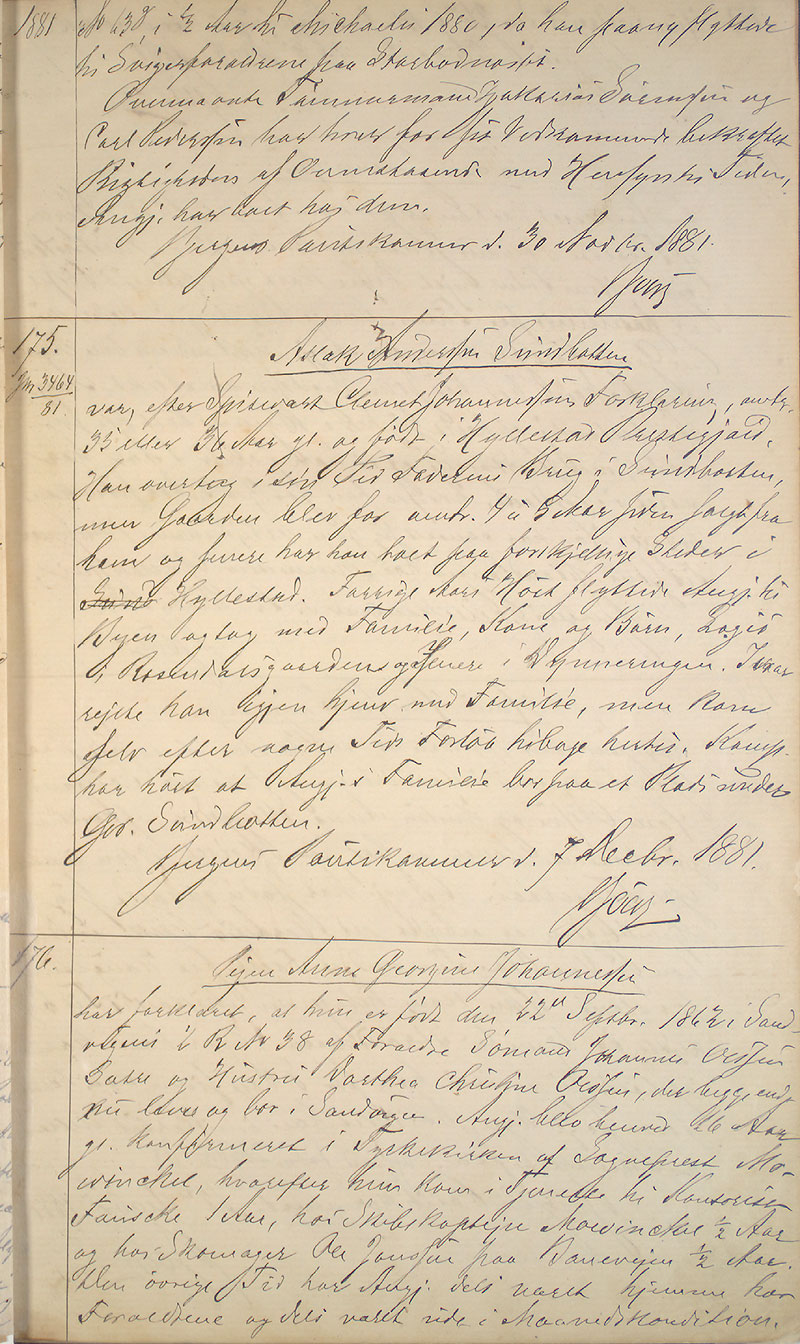 1881
No 63d, i ½ Aar til Michaeli 1880, da han paany flyttede
til Svigerforældrene paa Storbodnøst.
Ovennævnte Tømmermand Zakarias Sørensen og
Carl Pedersen har hver for sit Vedkommende bekræftet
Rigtigheden af Ovenstaaende med Hensyn til Tiden,
Angj. har boet hos dem.
Bergens Politikammer d. 30 Novbr. 1881.
175.
Jn 3464/81.
Aslak Andersen Svindbotten
var, efter Clemet Johannessens Forklaring, omtr.
35 eller 36 Aar gl. og født i Hyllestad Præstegjæld.
Han overtog i sin Tid Faderens Brug i Svindbotten,
men Gaarden blev for omtr. 4 à 5 Aar siden solgt fra
ham og senere har han boet paa forskjellige Steder i
Hyllestad. Forrige Aars Høst flyttede Angj. til
Byen og tog med Familie, Kone og Børn, Logis
i Rosendalsgaarden og senere i Dynneringen. I Vaar
rejste han igjen hjem med Familie, men kom
selv efter nogen Tids Forløb tilbage hertil. Komp.
har hørt at Angj.s Familie bor paa et Plads under
Grd. Svindbotten.
Bergens Politikammer d. 7 Decbr. 1881.
176.
Pigen Anne Georgine Johannessen
har forklaret, at hun er født den 22de Septbr. 1862 i Sand-
vigens 2 R No 38 af Forældre Sømand Johannes Olsen
og Hustru Dorthea Christine Olsen, der begge endnu
nu lever og bor i Sandvigen. Angj. blev henved 16 Aar
gl. konfirmeret i Tyskekirken af Sognepræst Mo-
winckel, hvorefter hun kom i Tjeneste hos
1 Aar, hos Skibskaptejn Mowinckel ½ Aar
og hos Skomager Ole Jonsen paa Banevejen ½ Aar.
Den øvrige Tid har Angj. dels været hjemme hos
Forældrene og dels været ude i Maanedskondition.